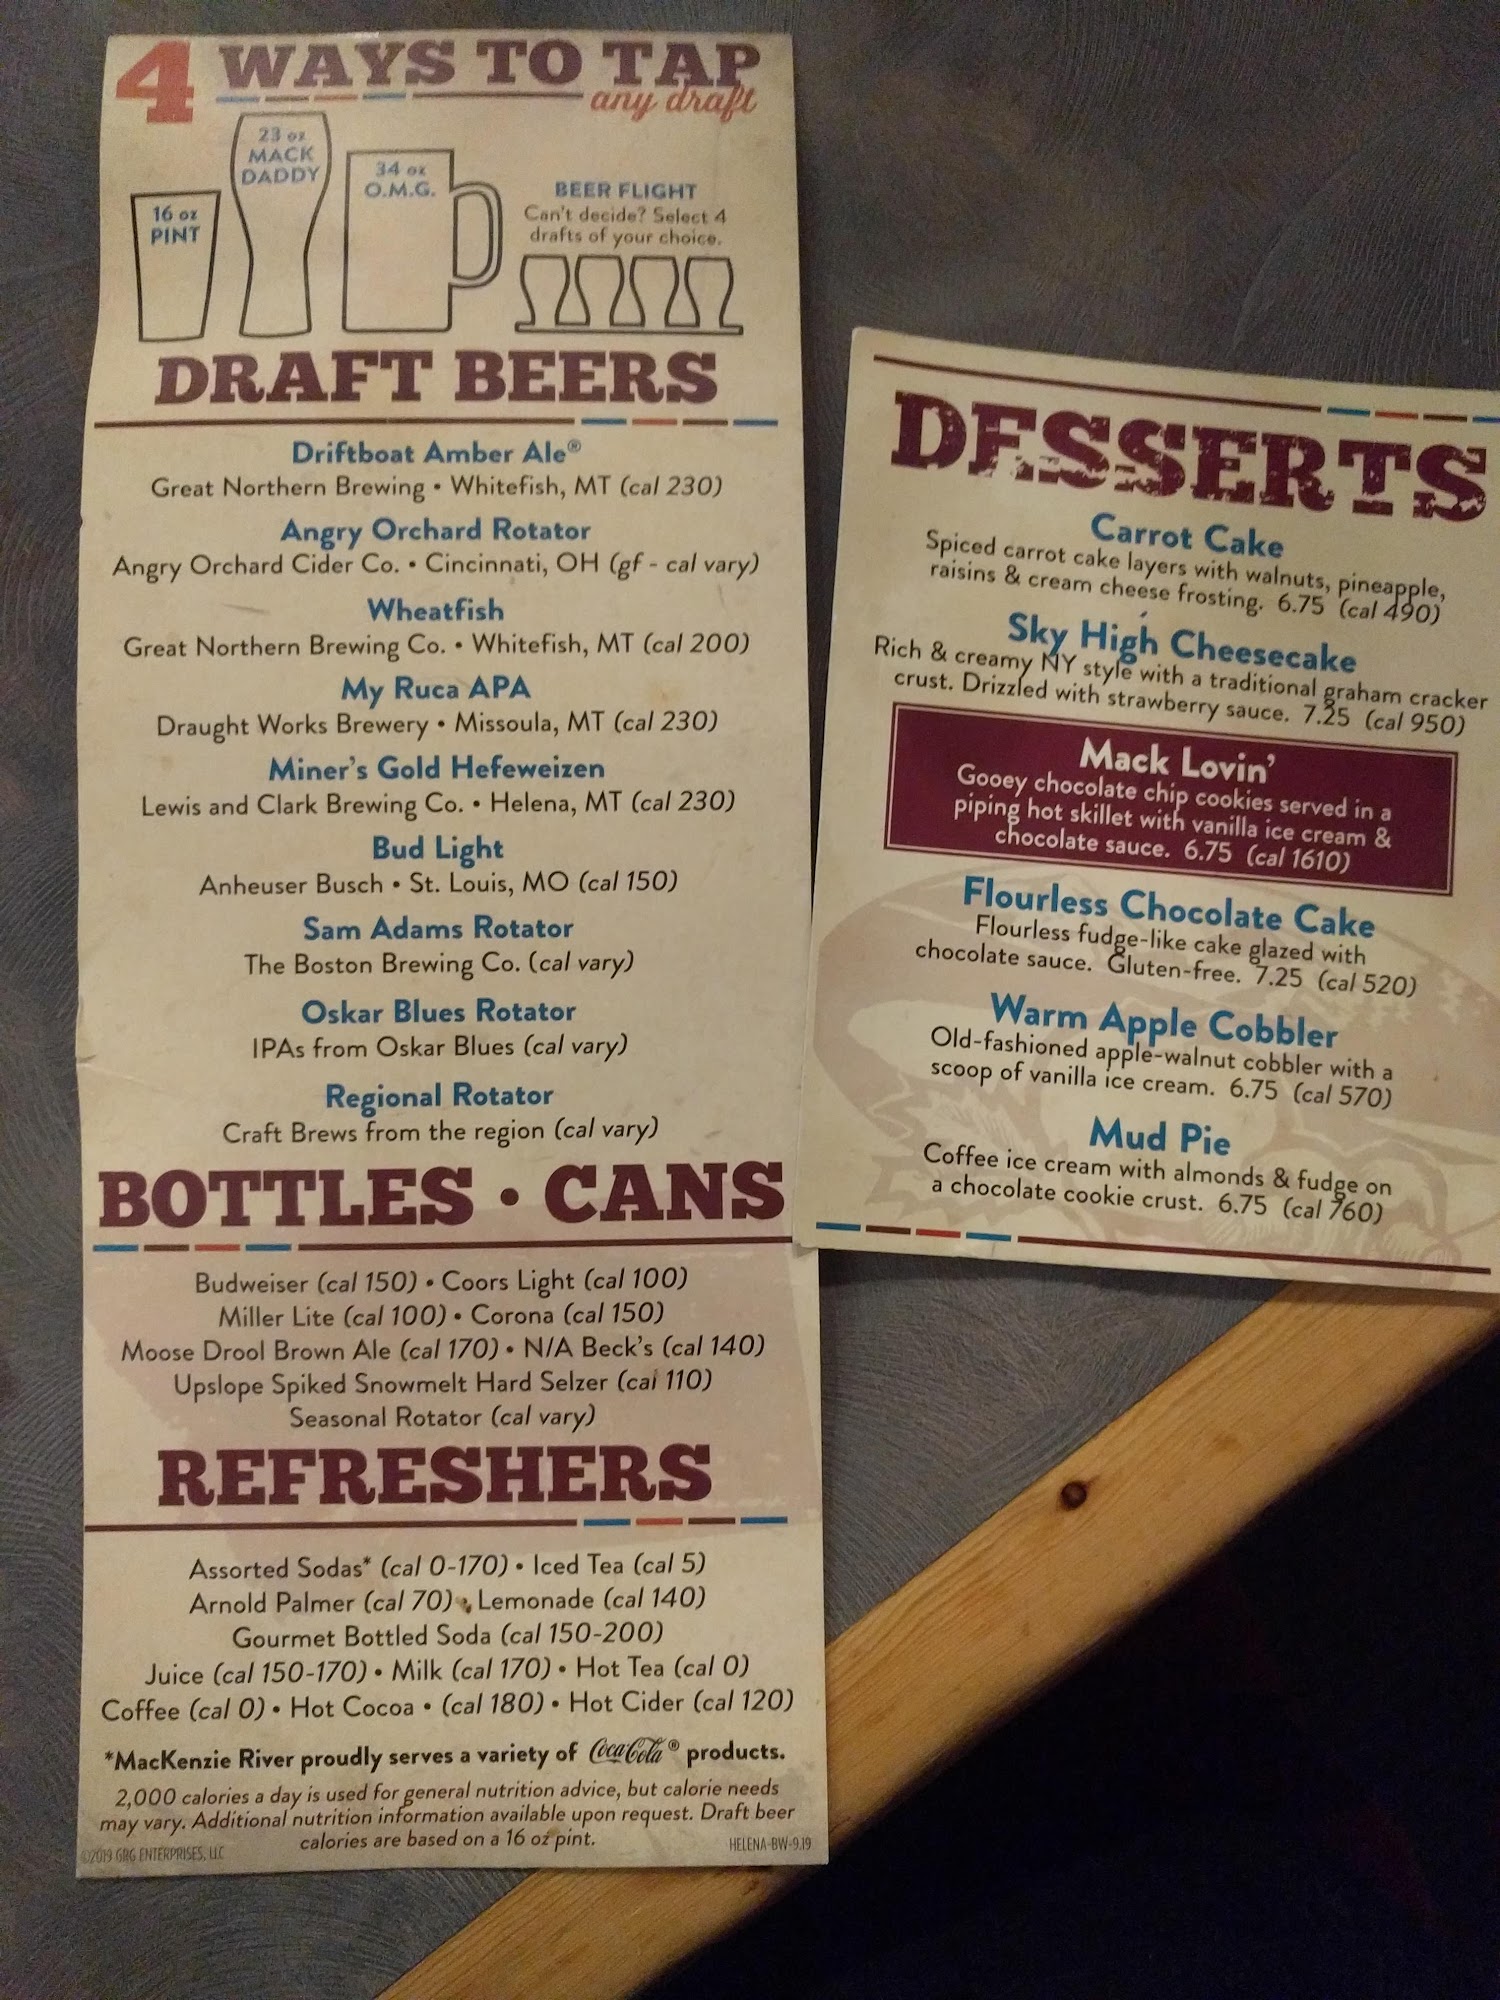 4 WAYS TO TAP
any draft
16 oz
PINT
23 oz
MACK
DADDY
34 oz
O.M.G.
BEER FLIGHT
Can't decide? Select 4
drafts of your choice.
DRAFT BEERS
Driftboat Amber Ale®
Great Northern Brewing • Whitefish, MT (cal 230)
Angry Orchard Rotator
Angry Orchard Cider Co. • Cincinnati, OH (gf - cal vary)
Wheatfish
Great Northern Brewing Co. • Whitefish, MT (cal 200)
My Ruca APA
Draught Works Brewery • Missoula, MT (cal 230)
Miner's Gold Hefeweizen
Lewis and Clark Brewing Co. • Helena, MT (cal 230)
Bud Light
Anheuser Busch • St. Louis, MO (cal 150)
Sam Adams Rotator
The Boston Brewing Co. (cal vary)
Oskar Blues Rotator
IPAs from Oskar Blues (cal vary)
Regional Rotator
Craft Brews from the region (cal vary)
BOTTLES • CANS
Budweiser (cal 150) • Coors Light (cal 100)
Miller Lite (cal 100) • Corona (cal 150)
Moose Drool Brown Ale (cal 170) • N/A Beck's (cal 140)
Upslope Spiked Snowmelt Hard Selzer (cal 110)
Seasonal Rotator (cal vary)
REFRESHERS
Assorted Sodas* (cal 0-170) • Iced Tea (cal 5)
Arnold Palmer (cal 70) • Lemonade (cal 140)
Gourmet Bottled Soda (cal 150-200)
Juice (cal 150-170) • Milk (cal 170) • Hot Tea (cal 0)
Coffee (cal 0) • Hot Cocoa • (cal 180) • Hot Cider (cal 120)
*MacKenzie River proudly serves a variety of Coca-Cola® products.
2,000 calories a day is used for general nutrition advice, but calorie needs
may vary. Additional nutrition information available upon request. Draft beer
calories are based on a 16 oz pint.
©2019 GBG ENTERPRISES, LLC
HELENA-BW-9.19
DESSERTS
Carrot Cake
Spiced carrot cake layers with walnuts, pineapple,
raisins & cream cheese frosting. 6.75 (cal 490)
Sky High Cheesecake
Rich & creamy NY style with a traditional graham cracker
crust. Drizzled with strawberry sauce. 7.25 (cal 950)
Mack Lovin'
Gooey chocolate chip cookies served in a
piping hot skillet with vanilla ice cream &
chocolate sauce. 6.75 (cal 1610)
Flourless Chocolate Cake
Flourless fudge-like cake glazed with
chocolate sauce. Gluten-free. 7.25 (cal 520)
Warm Apple Cobbler
Old-fashioned apple-walnut cobbler with a
scoop of vanilla ice cream. 6.75 (cal 570)
Mud Pie
Coffee ice cream with almonds & fudge on
a chocolate cookie crust. 6.75 (cal 760)